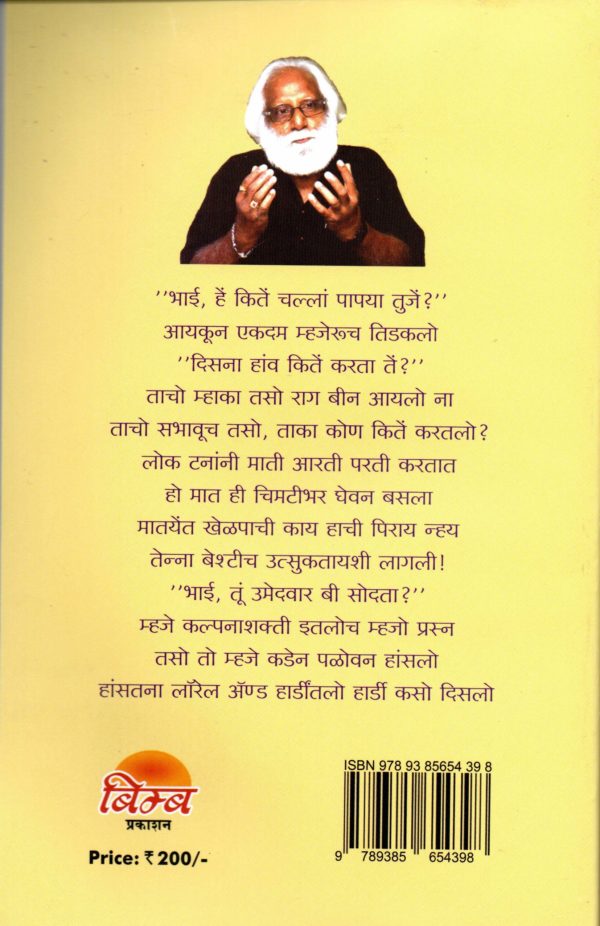 ’’भाई, हें कितें चल्लां पापया तुजें?’’
आयकून एकदम म्हजेरूच तिडकलो
’’दिसना हांव कितें करता तें?’’
ताचो म्हाका तसो राग बीन आयलो ना
ताचो सभावूच तसो, ताका कोण कितें करतलो?
लोक टनांनी माती आरती परती करतात
हो मात ही चिमटीभर घेवन बसला
मातयेंत खेळपाची काय हाची पिराय न्हय
तेन्ना बेश्टीच उत्सुकतायशी लागली!
’’भाई, तूं उमेदवार बी सोदता?’’
म्हजे कल्पनाशक्ती इतलोच म्हजो प्रस्न
तसो तो म्हजे कडेन पळोवन हांसलो
हांसतना लॉरेल ॲण्ड हार्डींतलो हार्डी कसो दिसलो
बिम्ब
प्रकाशन
Price: ₹ 200/-
ISBN 978 93 85654 39 8
9 789385 654398